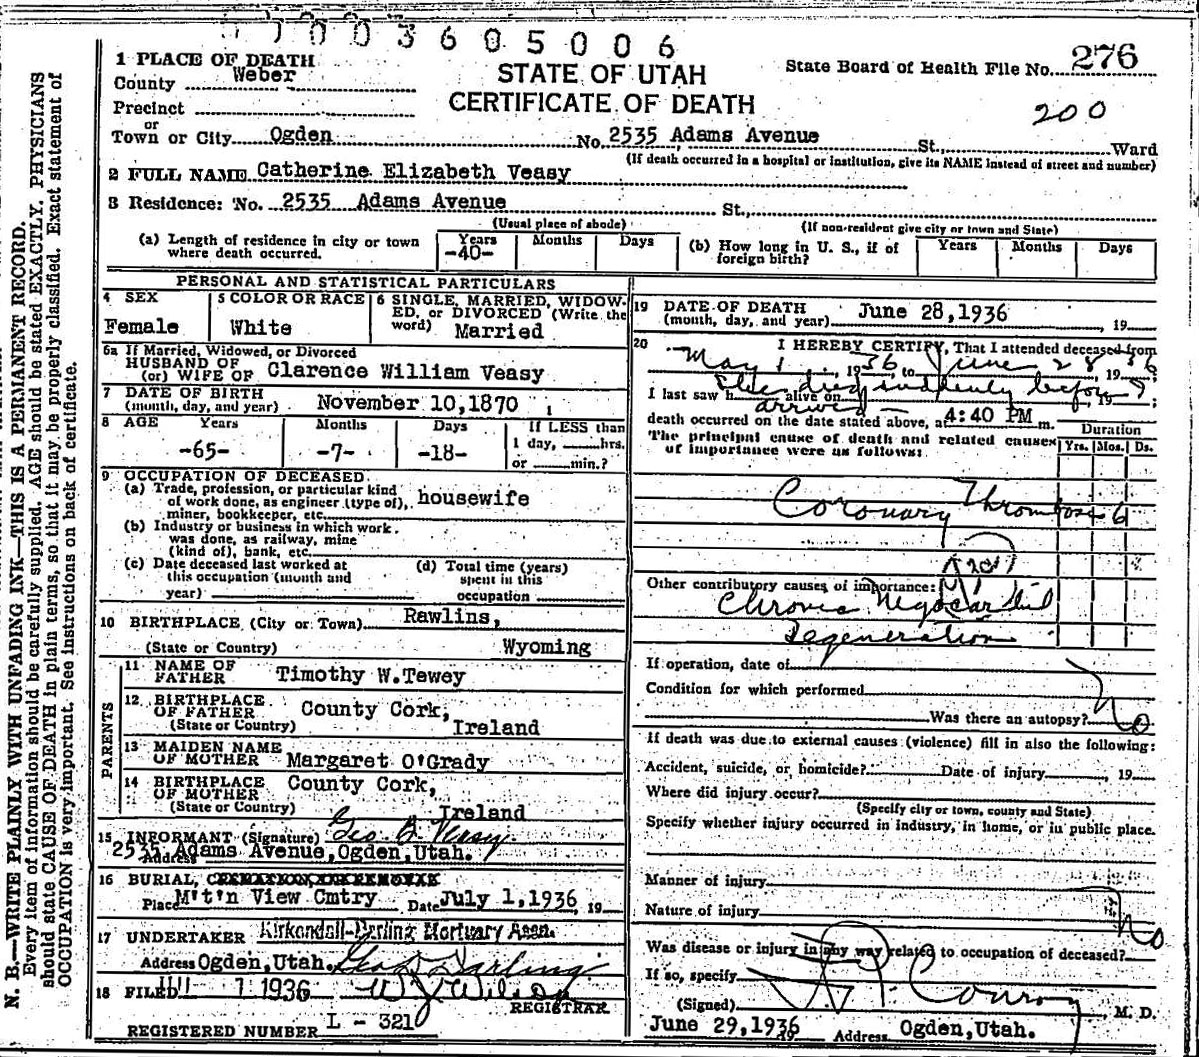 7003605006
1 PLACE OF DEATH
County Weber
STATE OF UTAH
State Board of Health File No. 276
Precinct
CERTIFICATE OF DEATH
200
or
Town or City Ogden No. 2535 Adams Avenue St., Ward
(If death occurred in a hospital or institution, give its NAME instead of street and number)
2 FULL NAME Catherine Elizabeth Veasy
3 Residence: No. 2535 Adams Avenue St.,
(Usual place of abode) (If non-resident give city or town and State)
(a) Length of residence in city or town where death occurred. Years -40- Months Days (b) How long in U. S., if of foreign birth? Years Months Days
PERSONAL AND STATISTICAL PARTICULARS
4 SEX Female
5 COLOR OR RACE White
6 SINGLE, MARRIED, WIDOWED, or DIVORCED (Write the word) Married
6a If Married, Widowed, or Divorced
HUSBAND OF
(or) WIFE OF Clarence William Veasy
7 DATE OF BIRTH
(month, day, and year) November 10,1870
8 AGE Years -65- Months -7- Days -18- If LESS than 1 day, hrs. or min.?
9 OCCUPATION OF DECEASED
(a) Trade, profession, or particular kind
of work done, as engineer (type of),
miner, bookkeeper, etc. housewife
(b) Industry or business in which work
was done, as railway, mine
(kind of), bank, etc.
(c) Date deceased last worked at
this occupation (month and
year)
(d) Total time (years)
spent in this
occupation
10 BIRTHPLACE (City or Town) Rawlins,
(State or Country) Wyoming
PARENTS
11 NAME OF
FATHER Timothy W.Tewey
12 BIRTHPLACE
OF FATHER County Cork,
(State or Country) Ireland
13 MAIDEN NAME
OF MOTHER Margaret O'Grady
14 BIRTHPLACE
OF MOTHER County Cork,
(State or Country) Ireland
15 INFORMANT (Signature) Geo. C. Veasy
Address 2535 Adams Avenue,Ogden,Utah.
16 BURIAL, CREMATION, OR REMOVAL
Place M't'n View Cmtry Date July 1,1936, 19
17 UNDERTAKER Kirkendall-Darling Mortuary Assn.
Address Ogden,Utah. Geo Darling
18 FILED JUL 1 1936 W J Wilson
REGISTRAR
REGISTERED NUMBER L - 321
19 DATE OF DEATH
(month, day, and year) June 28,1936, 19
20 I HEREBY CERTIFY, That I attended deceased from
May 1, 1936 June 28, 1936
I last saw h alive on, 19;
She died suddenly before I
arrived
death occurred on the date stated above, at 4:40 PM m.
The principal cause of death and related causes
of importance were as follows:
Duration
Yrs. Mos. Ds.
Coronary Thrombosis
Other contributory causes of importance:
Chronic Myocardial
Degeneration
If operation, date of
Condition for which performed
Was there an autopsy? No
If death was due to external causes (violence) fill in also the following:
Accident, suicide, or homicide? Date of injury, 19
Where did injury occur?
(Specify city or town, county and State)
Specify whether injury occurred in industry, in home, or in public place.
Manner of injury
Nature of injury
Was disease or injury in any way related to occupation of deceased? No
If so, specify
(Signed) Conroy M. D.
June 29,1936 19 Address Ogden,Utah.
N. B.—WRITE PLAINLY WITH UNFADING INK—THIS IS A PERMANENT RECORD.
Every item of information should be carefully supplied. AGE should be stated EXACTLY. PHYSICIANS
should state CAUSE OF DEATH in plain terms, so that it may be properly classified. Exact statement of
OCCUPATION is very important. See instructions on back of certificate.